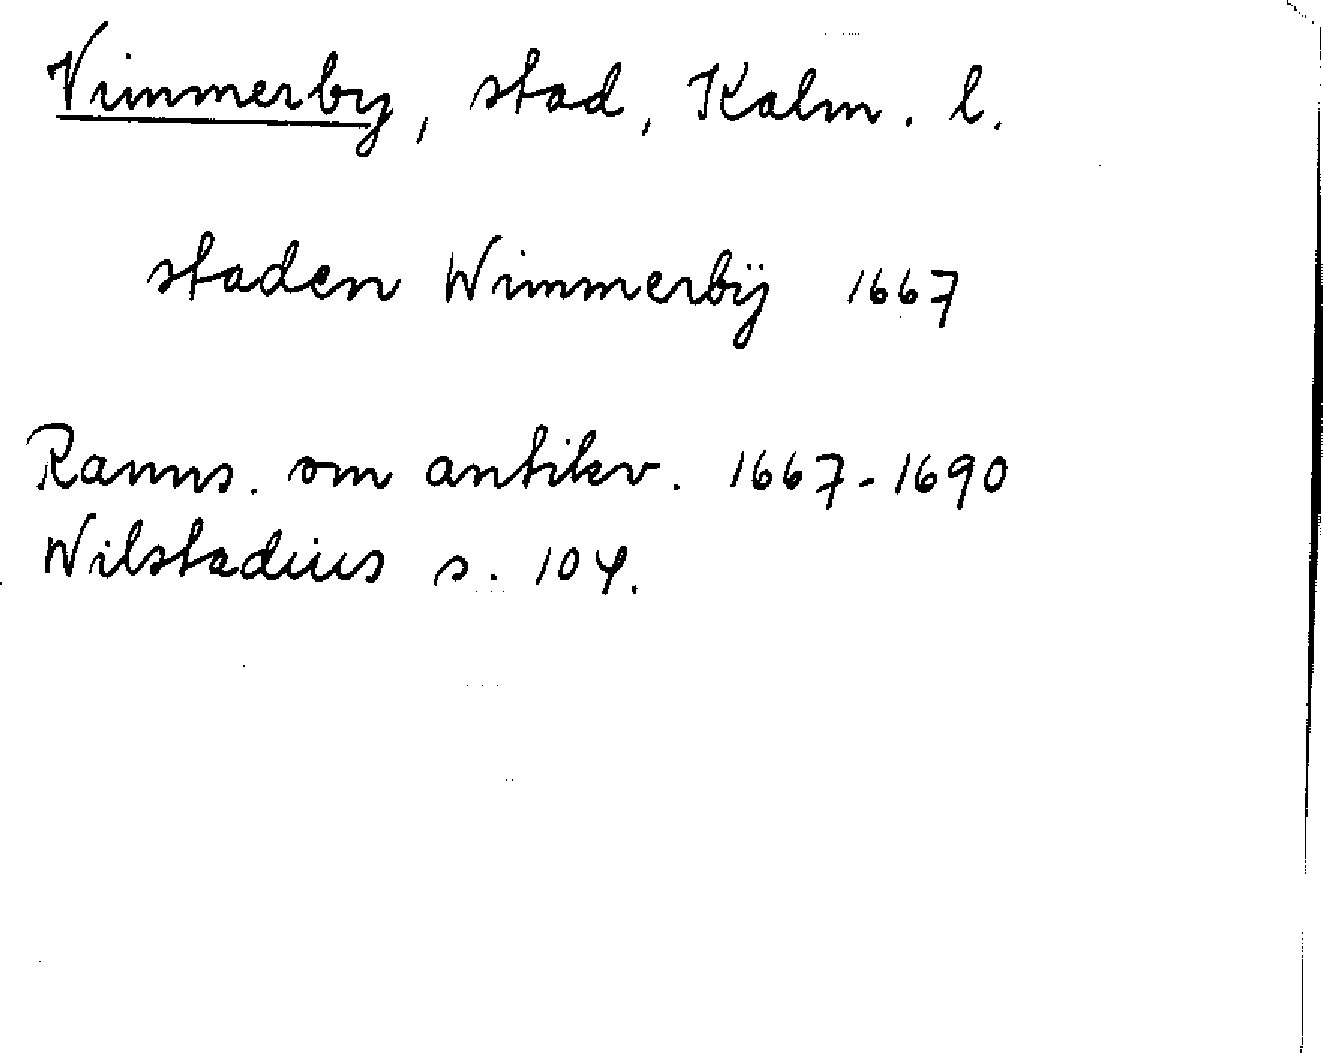 Vimmerby, stad, Kalm. l.
staden Wimmerbÿ 1667
Ranns. om antikv. 1667-1690
Wilstadius s. 104.